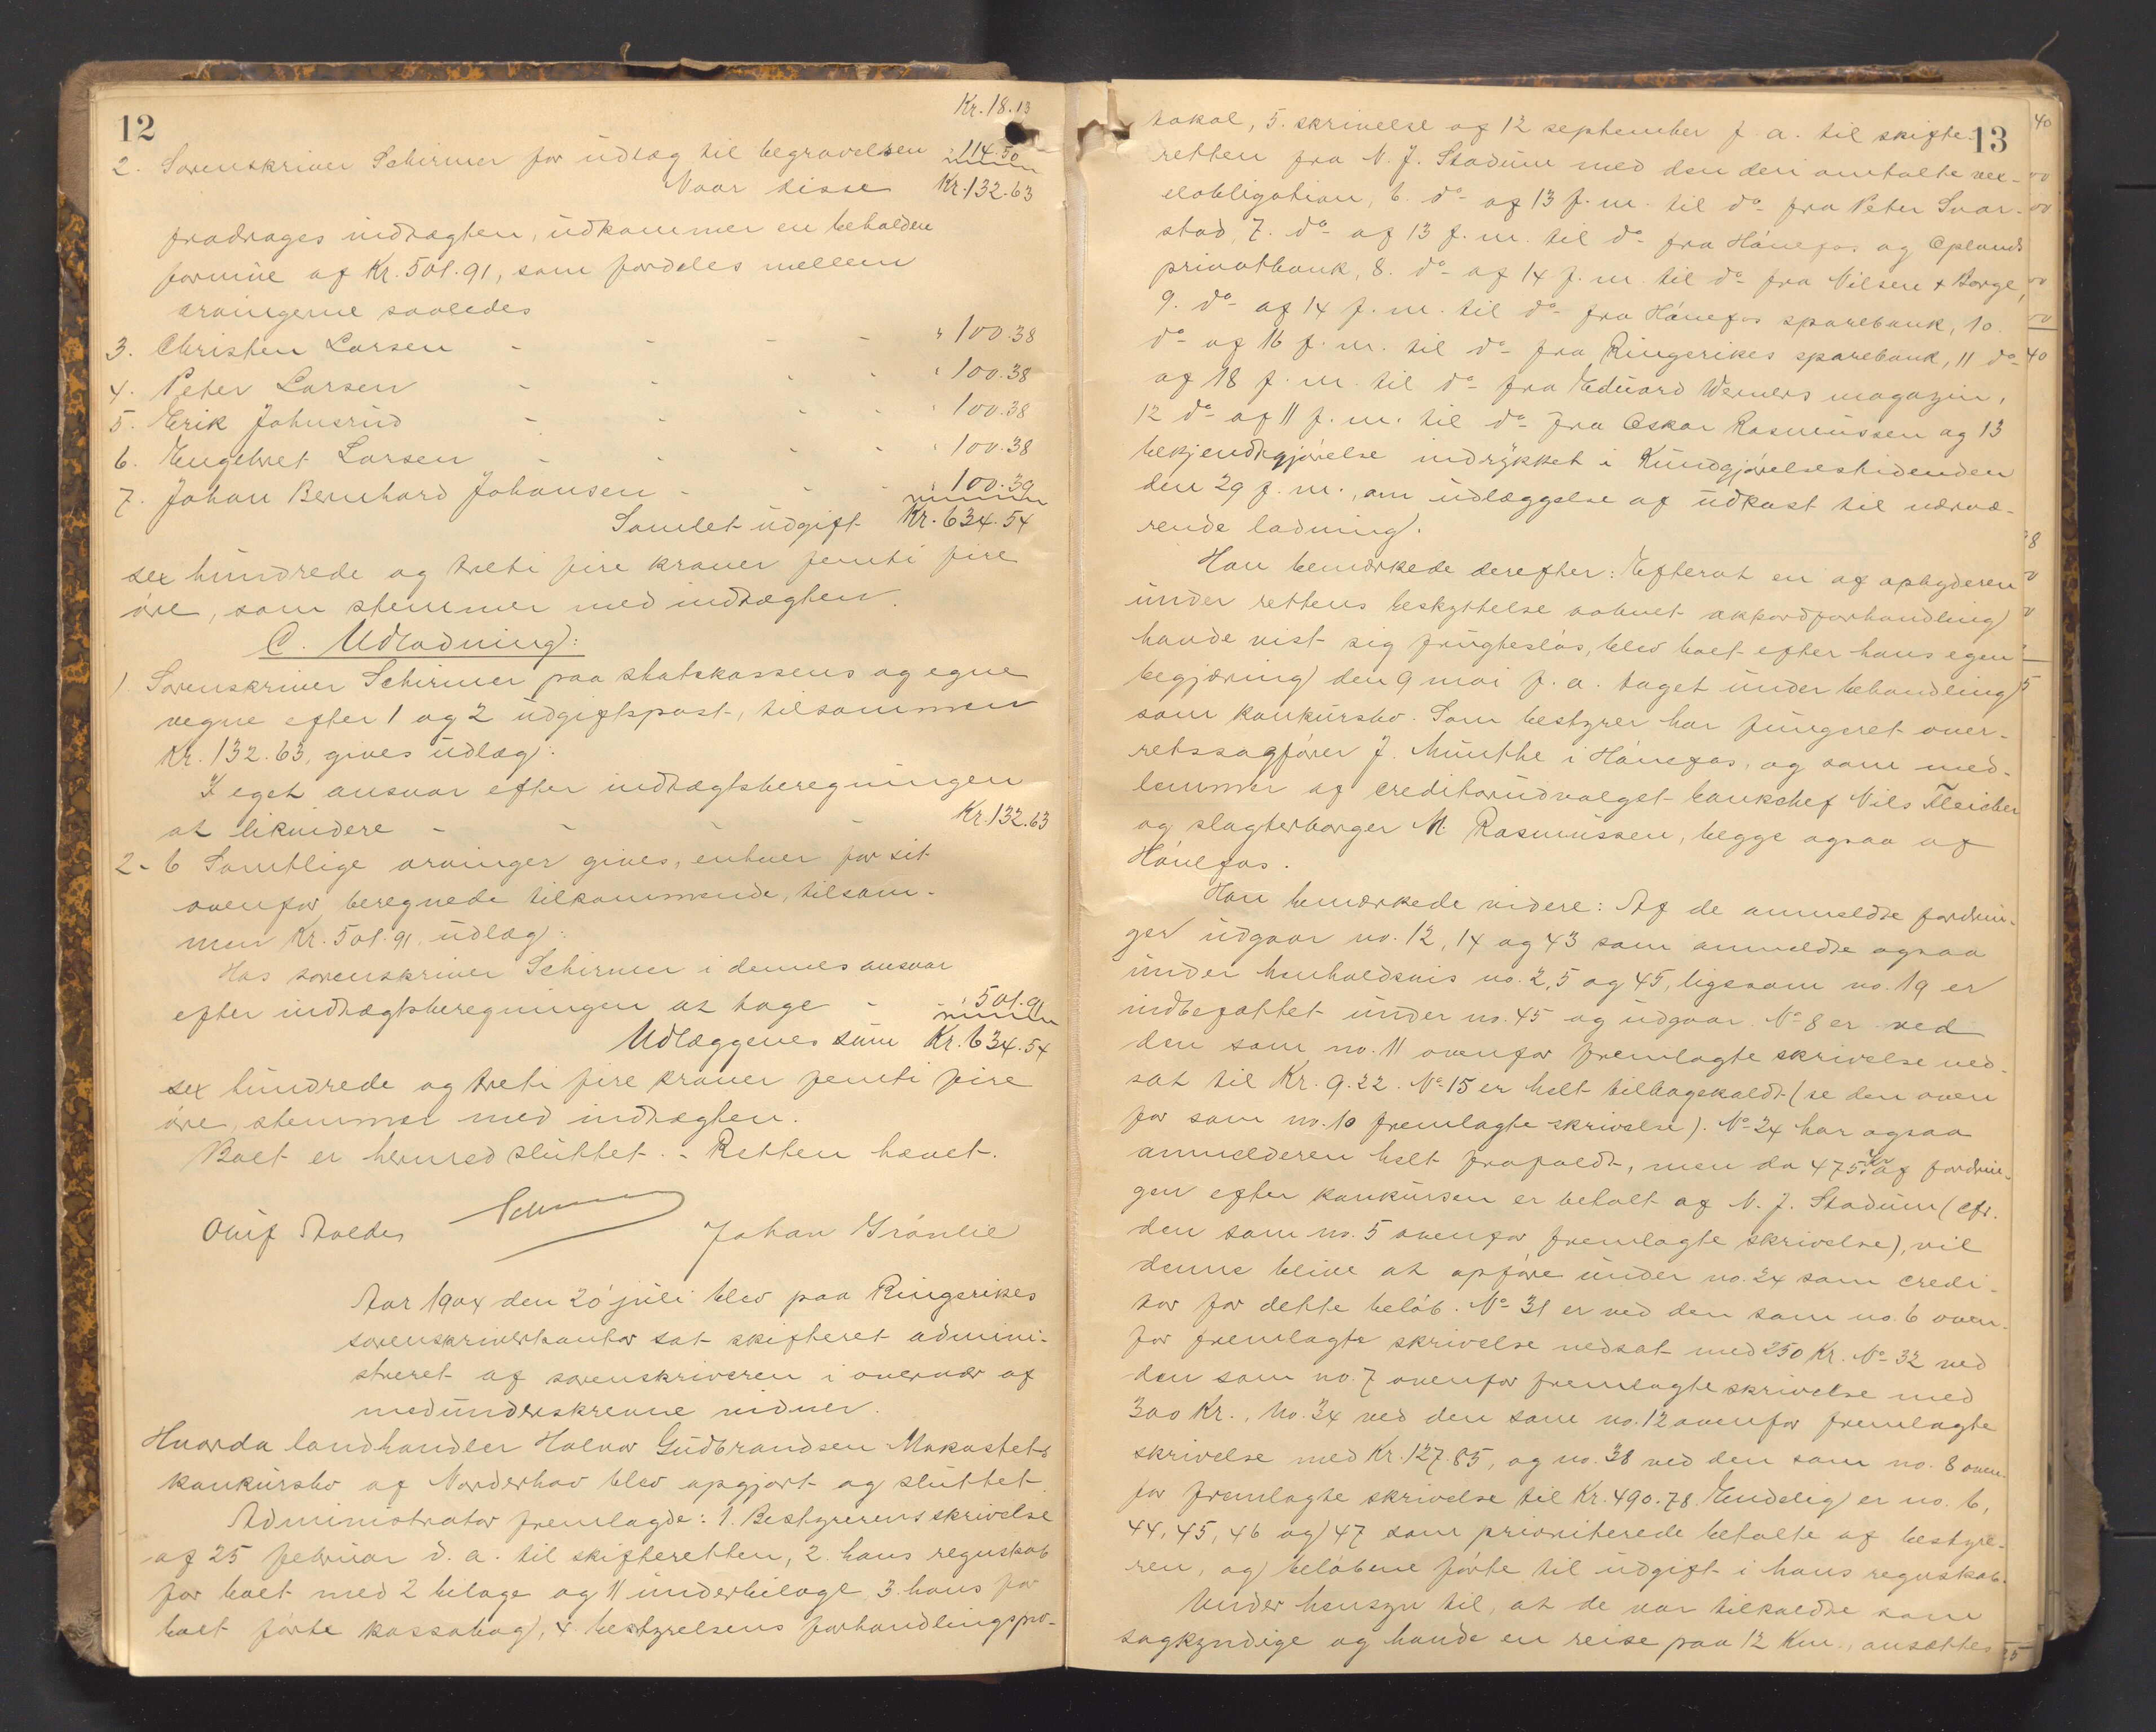 12
Kr. 18.13
2. Sorenskriver Schirmer for udlæg til begravelsen " 114.50
Naar disse Kr. 132.63
fradrages indtægten, udkommer en beholden
formue af Kr. 501.91, som fordeles mellem
arvingerne saaledes
3. Christen Larsen - - - - " 100.38
4. Peter Larsen - - - - " 100.38
5. Erik Johnsrud - - - - " 100.38
6. Engebret Larsen - - - - " 100.38
7. Johan Bernhard Johansen - - - " 100.39
Samlet udgift Kr. 634.54
sex hundrede og treti fire kroner femti fire
øre, som stemmer med indtægten.
C. Udlodning:
1. Sorenskriver Schirmer paa statskassens og egne
vegne efter 1 og 2 udgiftspost, tilsammen
Kr. 132.63, gives udlæg:
I eget ansvar efter indtægtsberegningen
at likvidere - - - - Kr. 132.63
2-6 Samtlige arvinger gives, enhver for sit
ovenfor beregnede tilkommende, tilsam-
men Kr. 501.91, udlæg:
Hos sorenskriver Schirmer i dennes ansvar
efter indtægtsberegningen at tage - - " 501.91
Udlæggenes sum Kr. 634.54
sex hundrede og treti fire kroner femti fire
øre, stemmer med indtægten.
Boet er hermed sluttet. - Retten hævet.
Schirmer
Johan Grönlie
Aar 1904 den 20 juli blev paa Ringerikes
sorenskriverkontor sat skifteret admini-
streret af sorenskriveren i overvær af
medunderskrevne vidner.
Hvorda landhandler Halvor Gudbrandsen Mokastets
konkursbo af Norderhov blev opgjort og sluttet.
Administrator fremlagde: 1. Bestyrerens skrivelse
af 25 februar d. a. til skifteretten, 2. hans regnskab
for boet med 2 bilage og 11 underbilage, 3. hans for
boet førte kassabog, 4. bestyrelsens forhandlingspro-
13
tokol, 5. skrivelse af 12 september f. a. til skifte-
retten fra N. J. Stadum med den deri omtalte vex-
elobligation, 6. do af 13 f. m. til do fra Peter Svar-
stad, 7. do af 13 f. m. til do fra Hønefos og Oplands
privatbank, 8. do af 14 f. m. til do fra Nilsen & Borge,
9. do af 14 f. m. til do fra Hønefos sparebank, 10.
do af 16 f. m. til do fra Ringerikes sparebank, 11 do
af 18 f. m. til do fra Eduard Werners magazin,
12 do af 11 f. m. til do fra Oskar Rasmussen og 13
bekjendtgjørelse indrykket i Kundgjørelsestidenden
den 29 f. m., om udlæggelse af udkast til nærvæ-
rende lodning.
Han bemærkede derefter: Efterat en af opbyderen
under rettens beskyttelse aabnet akkordforhandling
havde vist sig frugtesløs, blev boet efter hans egen
begjæring den 9 mai f. a. taget under behandling
som konkursbo. Som bestyrer har fungeret over-
retssagfører J. Munthe i Hønefos, og som med-
lemmer af creditorudvalget bankchef Nils Fleicher
og slagterborger M. Rasmussen, begge ogsaa af
Hønefos.
Han bemærkede videre: Af de anmeldte fordrin-
ger udgaar no. 12, 14 og 43 som anmeldte ogsaa
under henholdsvis no. 2, 5 og 45, ligesom no. 19 er
indbefattet under no. 45 og udgaar. No 8 er ved
den som no. 11 ovenfor fremlagte skrivelse ned-
sat til Kr. 9.22. No 15 er helt tilbagekaldt (se den oven
for som no. 10 fremlagte skrivelse). No 24 har ogsaa
anmelderen helt frafaldt, men da 475 Kr. af fordrin-
gen efter konkursen er betalt af N. J. Stadum (cfr.
den som no. 5 ovenfor fremlagte skrivelse), vil
denne blive at opføre under no. 24 som credi-
tor for dette beløb. No 31 er ved den som no. 6 oven-
for fremlagte skrivelse nedsat med 250 Kr. No 32 ved
den som no. 7 ovenfor fremlagte skrivelse med
300 Kr., no. 34 ved den som no. 12 ovenfor fremlagte
skrivelse med Kr. 127.85, og no. 38 ved den som no. 8 oven-
for fremlagte skrivelse til Kr. 490.78. Endelig er no. 6,
44, 45, 46 og 47 som prioriterede betalte af bestyre-
ren, og beløbene førte til udgift i hans regnskab.
Under hensyn til, at de var tilkaldte som
sagkyndige og havde en reise paa 12 Km., ansættes